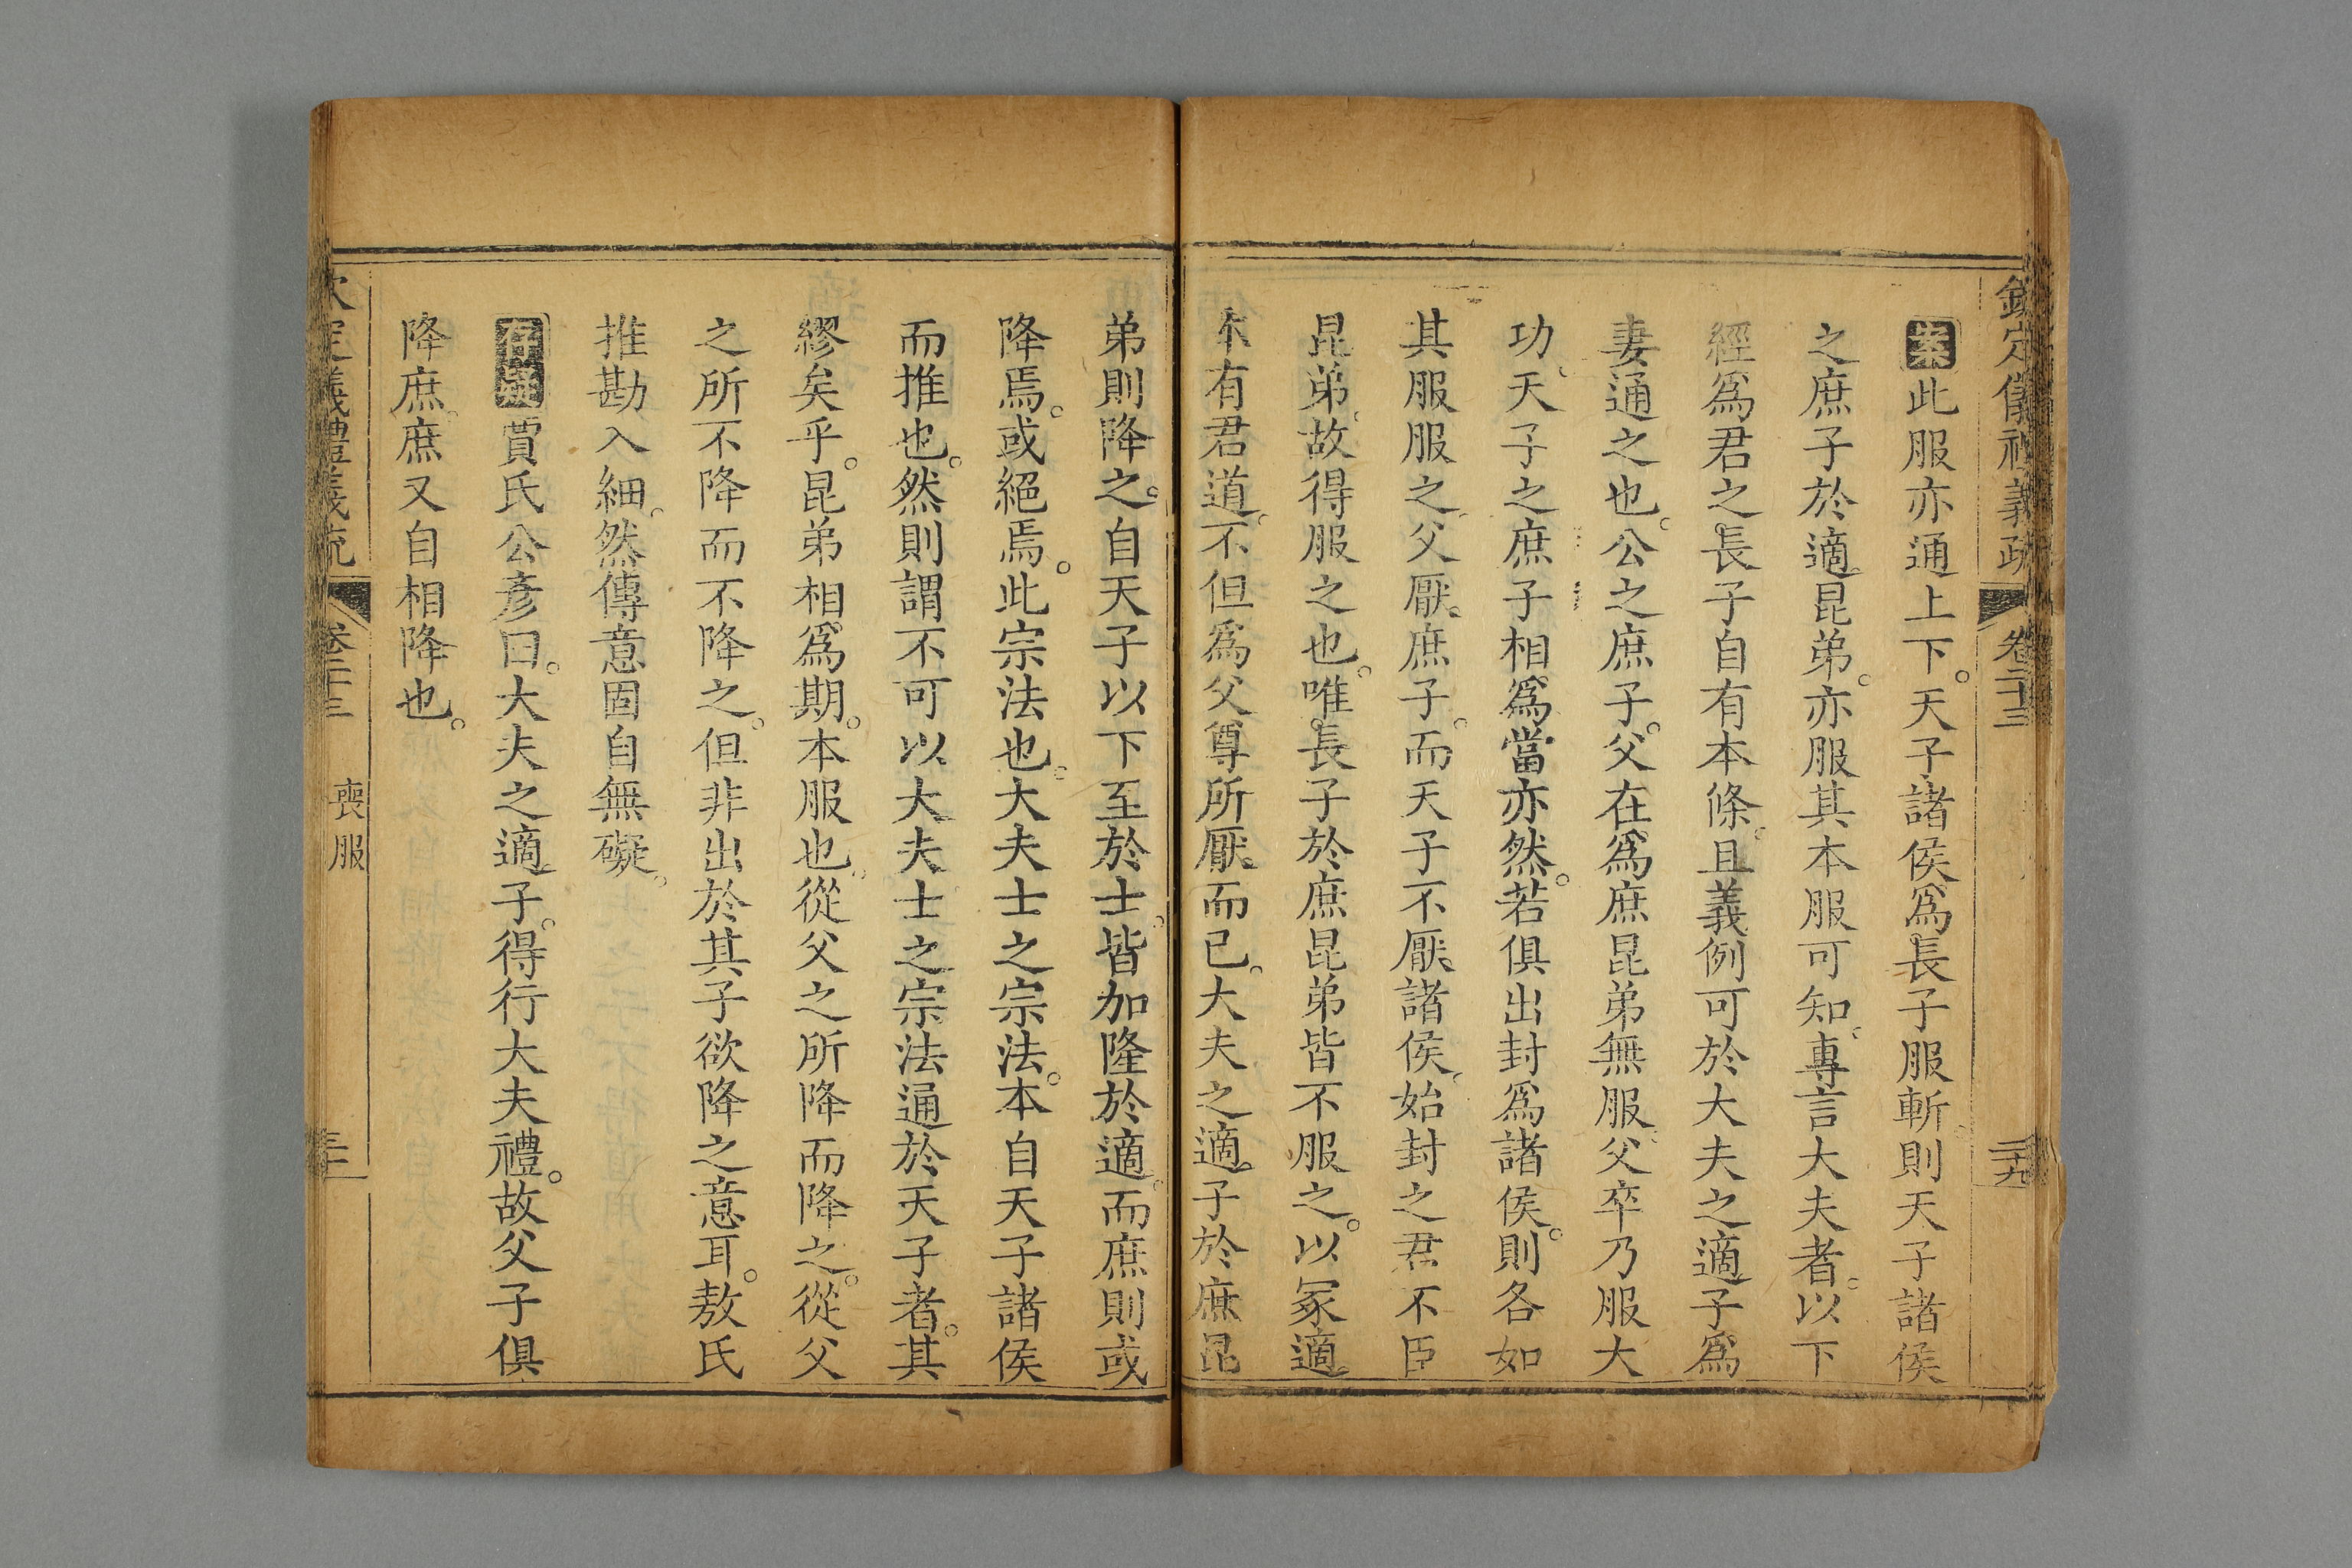 欽定儀禮義疏 卷二十三 二十九
案此服亦通上下。天子諸侯爲長子服斬則天子諸侯
之庶子於適昆弟。亦服其本服可知。專言大夫者。以下
經爲君之長子自有本條。且義例可於大夫之適子爲
妻通之也。公之庶子。父在爲庶昆弟無服。父卒乃服大
功、天子之庶子相爲當亦然。若俱出封爲諸侯。則各如
其服服之。父厭庶子。而天子不厭諸侯。始封之君不臣
昆弟。故得服之也。唯長子於庶昆弟皆不服之。以冢適
本有君道。不但爲父尊所厭而已。大夫之適子於庶昆
弟則降之。自天子以下至於士。皆加隆於適。而庶則或
降焉。或絕焉。此宗法也。大夫士之宗法。本自天子諸侯
而推也。然則謂不可以大夫士之宗法通於天子者。其
繆矣乎。昆弟相爲期。本服也。從父之所降而降之。從父
之所不降而不降之。但非出於其子欲降之意耳。敖氏
推勘入細。然傳意固自無礙。
存疑賈氏公彥曰。大夫之適子。得行大夫禮。故父子俱
降庶。庶又自相降也。
欽定儀禮義疏 卷二十三 喪服 三十